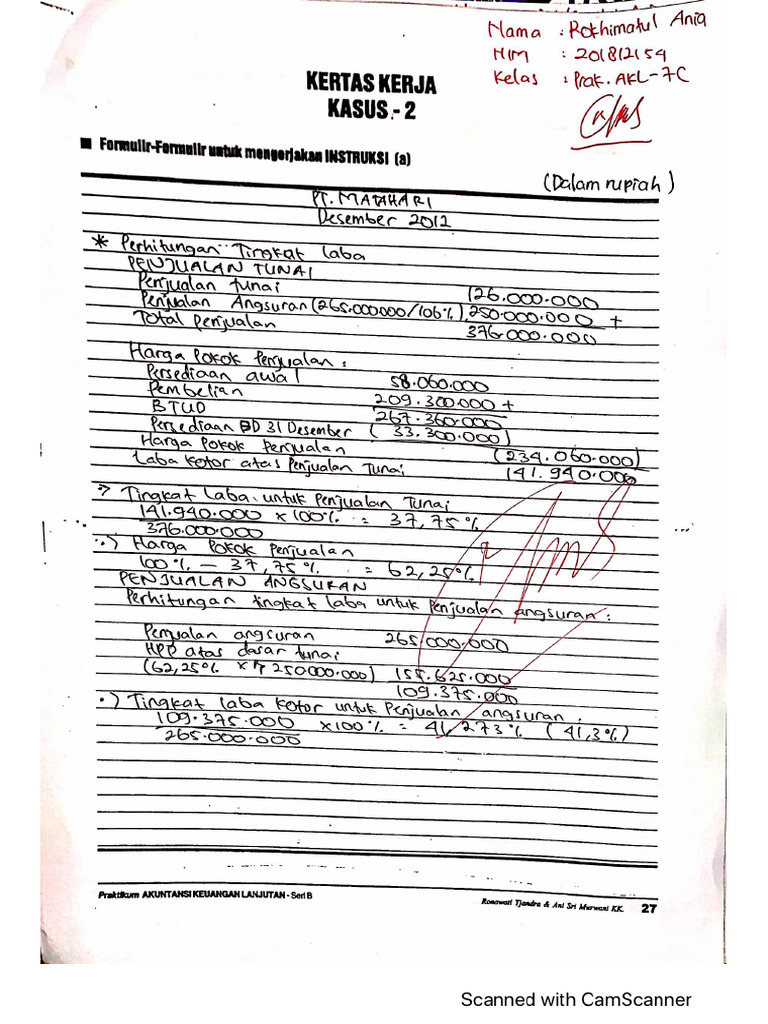 Nama : Rokhimatul Ania
NIM : 201812154
Kelas : Prak. AKL-7C
KERTAS KERJA
KASUS - 2
■ Formulir-Formulir untuk mengerjakan INSTRUKSI (a)
(Dalam rupiah)
PT. MATAHARI
Desember 2012
* Perhitungan Tingkat laba
PENJUALAN TUNAI
Penjualan tunai 126.000.000
Penjualan Angsuran (265.000000/106%) 250.000.000 +
Total penjualan 376.000.000
Harga Pokok Penjualan :
Persediaan awal 58.060.000
Pembelian 209.300.000 +
BTUD 267.360.000
Persediaan BD 31 Desember ( 33.300.000)
Harga Pokok penjualan (234.060.000)
Laba kotor atas Penjualan Tunai 141.940.000
·) Tingkat Laba untuk Penjualan Tunai
141.940.000 x 100% = 37,75%
376.000.000
·) Harga Pokok Penjualan
100% - 37,75% = 62,25%
PENJUALAN ANGSURAN
Perhitungan tingkat laba untuk Penjualan angsuran :
Penjualan angsuran 265.000.000
HPP atas dasar tunai
(62,25% x 250.000.000) 155.625.000
109.375.000
·) Tingkat laba kotor untuk Penjualan angsuran :
109.375.000 x100% = 41,273% (41,3%)
265.000.000
Praktikum AKUNTANSI KEUANGAN LANJUTAN - Seri B
Ronowati Tjandra & Ani Sri Murwani KK. 27
Scanned with CamScanner